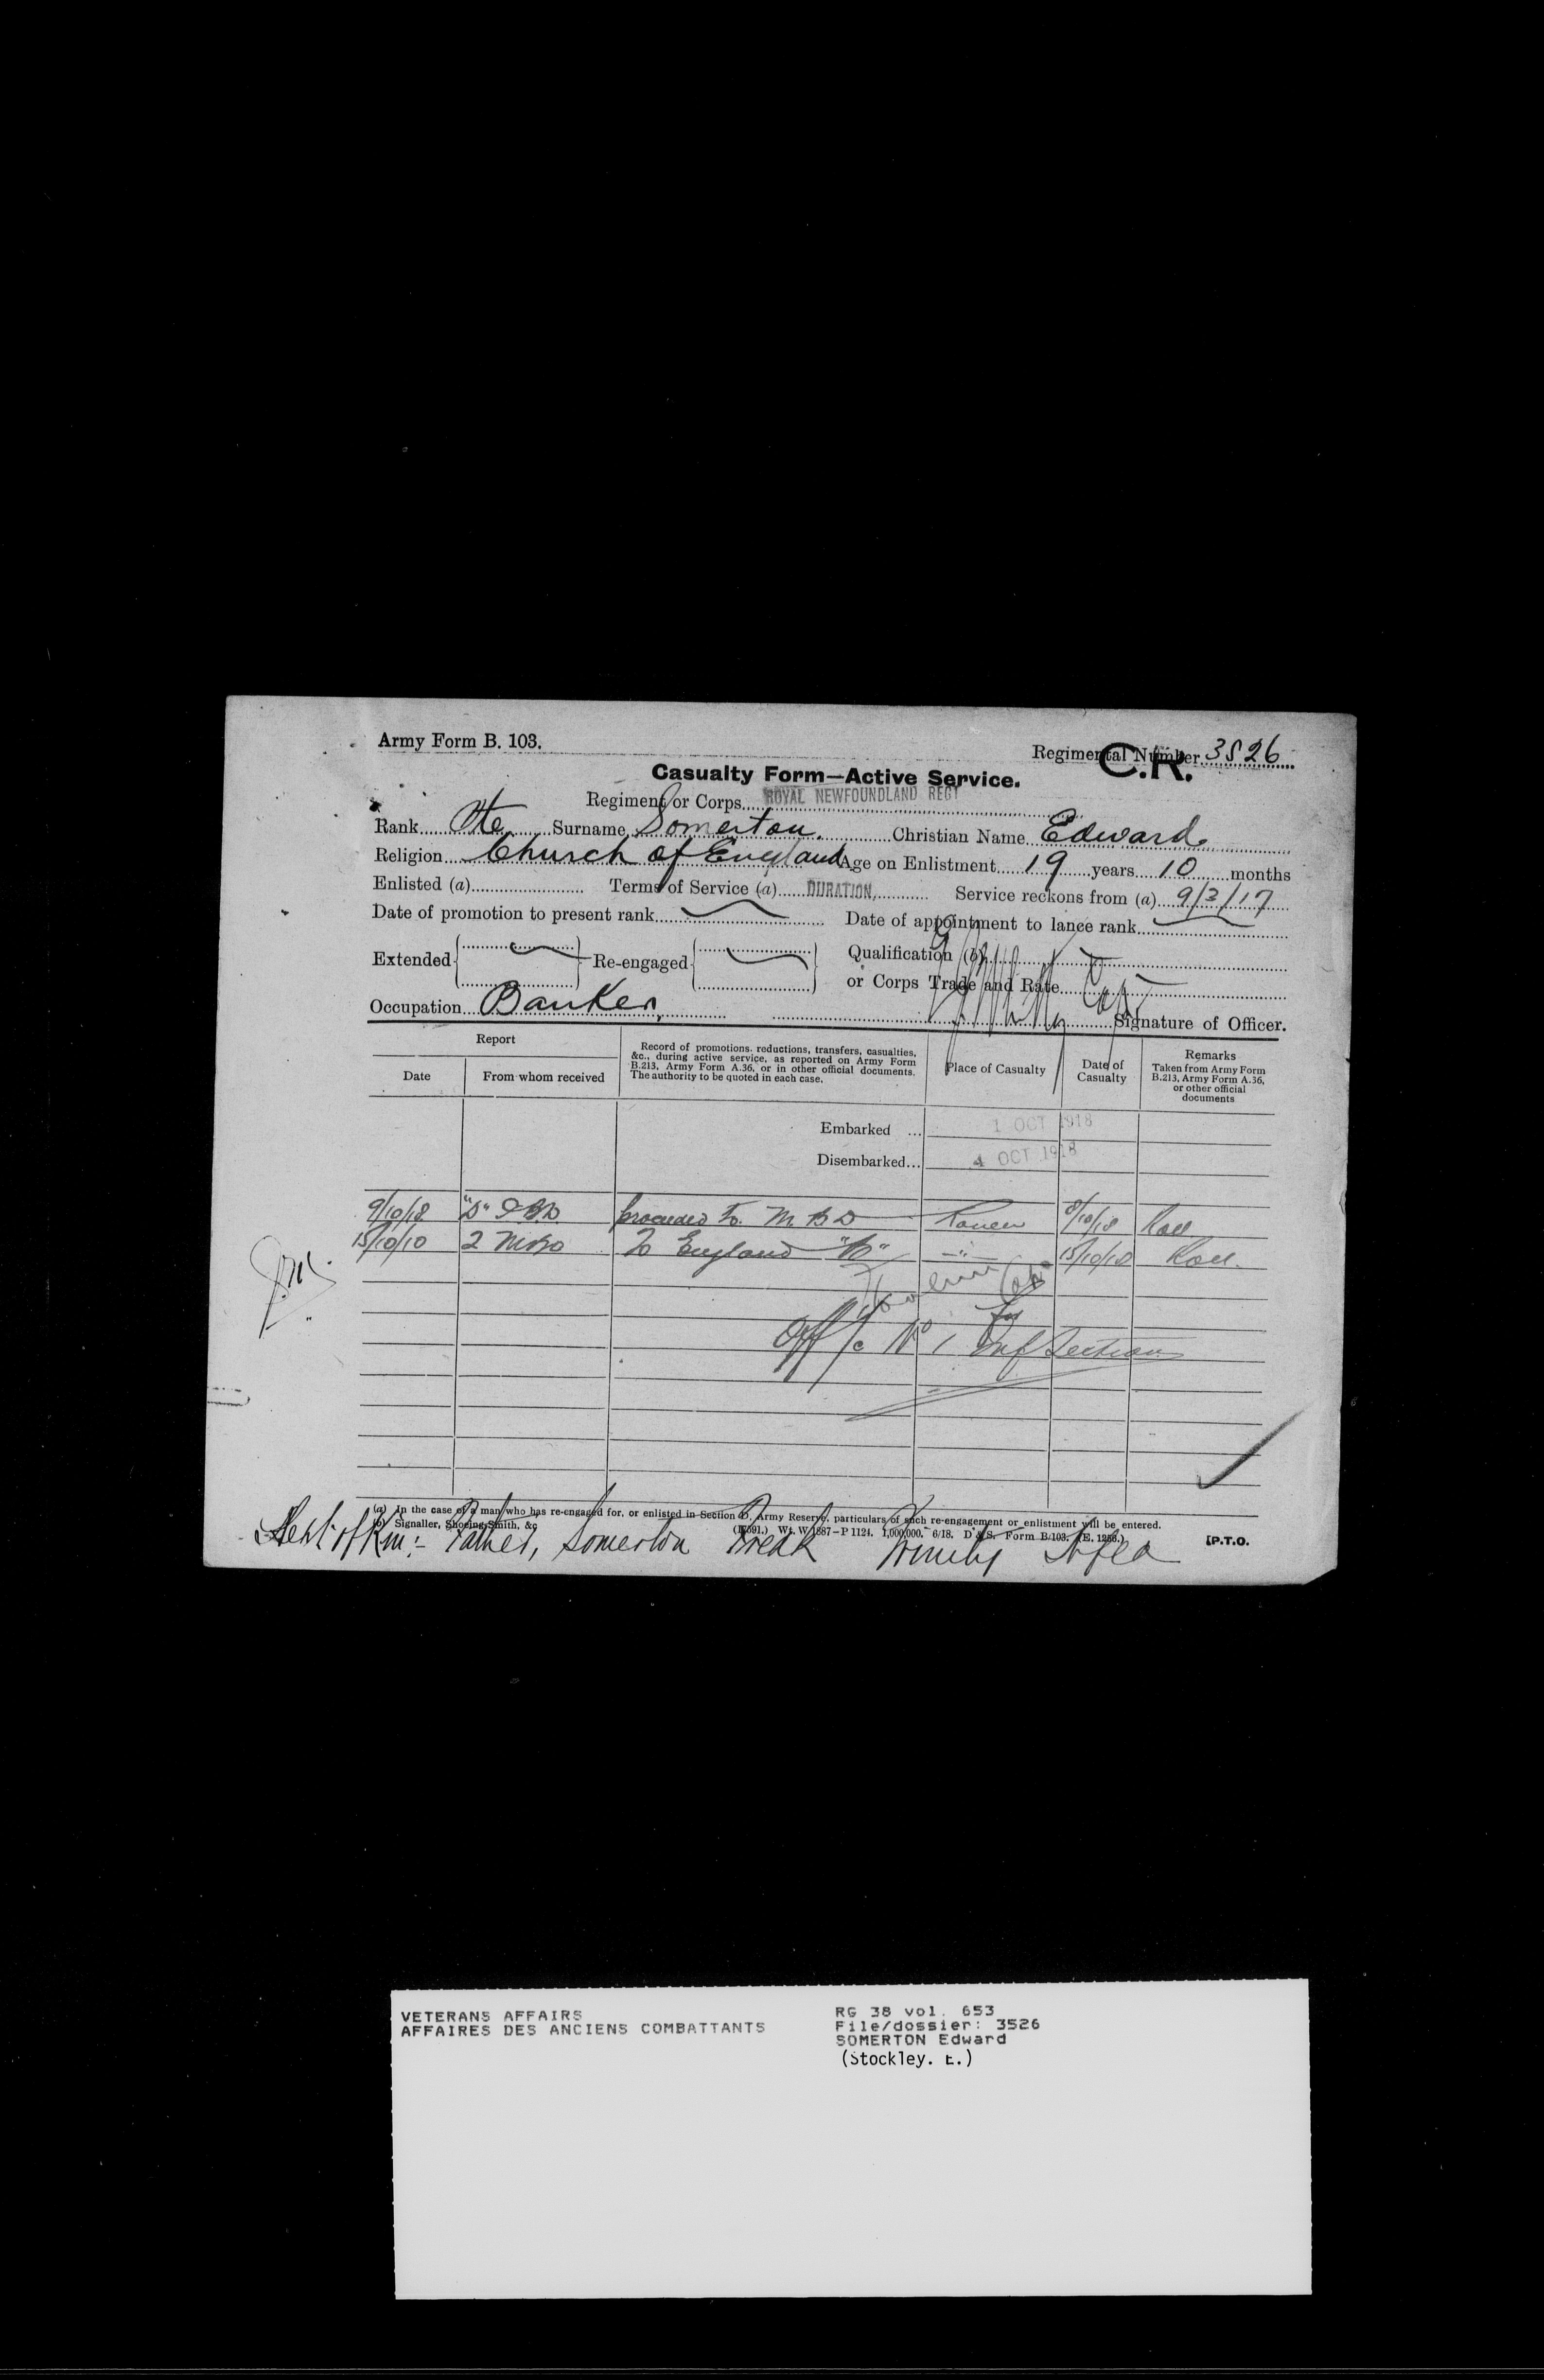 Army Form B. 103.
Regimental Number 3526
C.R.
Casualty Form—Active Service.
Regiment or Corps ROYAL NEWFOUNDLAND REGT
Rank Pte Surname Somerton. Christian Name Edward
Religion Church of England Age on Enlistment 19 years 10 months
Enlisted (a) Terms of Service (a) DURATION, Service reckons from (a) 9/3/17
Date of promotion to present rank Date of appointment to lance rank
Extended Re-engaged Qualification (b)
or Corps Trade and Rate
Occupation Banker, Capt Signature of Officer.
Report
Date From whom received
Record of promotions, reductions, transfers, casualties, &c., during active service, as reported on Army Form B.213, Army Form A.36, or in other official documents. The authority to be quoted in each case.
Place of Casualty
Date of Casualty
Remarks Taken from Army Form B.213, Army Form A.36, or other official documents
Embarked ... 1 OCT 1918
Disembarked... 4 OCT 1918
9/10/18 "D" I.B.D Proceeded to M B D Rouen 8/10/18 Roll
15/10/18 2 MBD To England "B" —"— 15/10/18 Roll.
Capt
for
Off i/c No 1 Inf Section
(a) In the case of a man who has re-engaged for, or enlisted in Section D, Army Reserve, particulars of such re-engagement or enlistment will be entered.
(b) Signaller, Shoeing Smith, &c
1,000,000. 6/18. D & S. Form B/103. (E. 1256.)
[P.T.O.
Next of Kin:- Father, Somerton Break Trinity Nfld
VETERANS AFFAIRS
AFFAIRES DES ANCIENS COMBATTANTS
RG 38 vol. 653
File/dossier: 3526
SOMERTON Edward
(Stockley. E.)